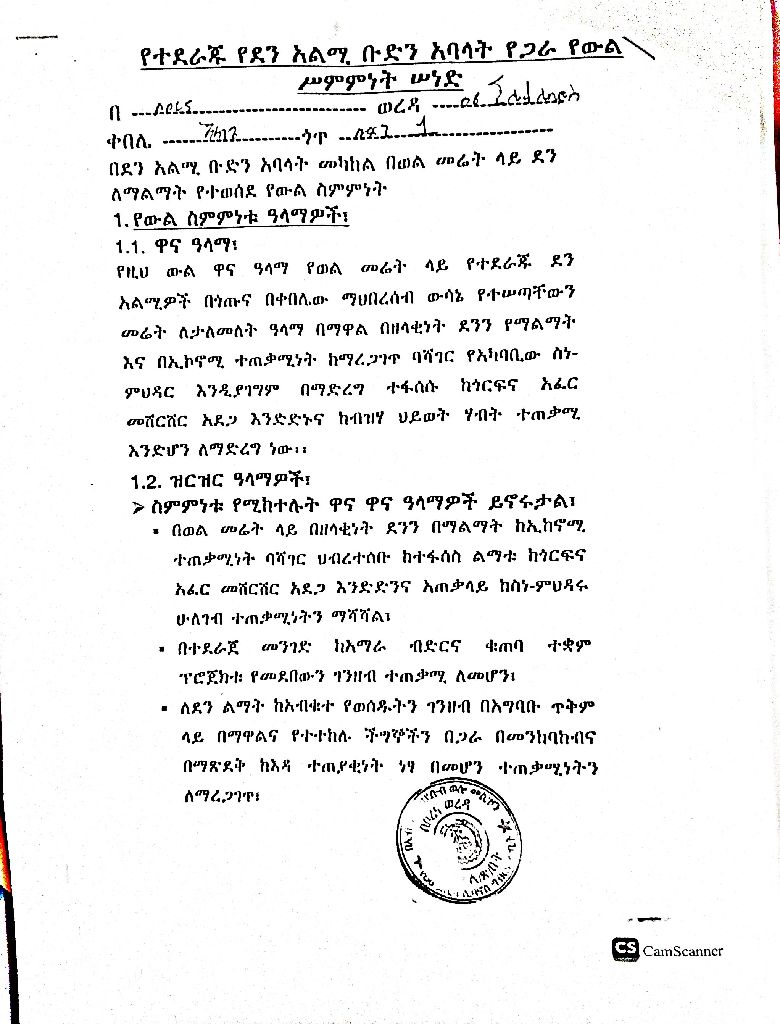 የተደራጁ የደን አልሚ ቡድን አባላት የጋራ የውል
ሥምምነት ሠነድ
በ ወረዳ
ቀበሌ ጎጥ 1
በደን አልሚ ቡድን አባላት መካከል በወል መሬት ላይ ደን
ለማልማት የተወሰደ የውል ስምምነት
1. የውል ስምምነቱ ዓላማዎች፣
1.1. ዋና ዓላማ፣
የዚህ ውል ዋና ዓላማ የወል መሬት ላይ የተደራጁ ደን
አልሚዎች በጎጡና በቀበሌው ማህበረሰብ ውሳኔ የተሠጣቸውን
መሬት ለታለመለት ዓላማ በማዋል በዘላቂነት ደንን የማልማት
እና በኢኮኖሚ ተጠቃሚነት ከማረጋገጥ ባሻገር የአካባቢው ስነ-
ምህዳር እንዲያገግም በማድረግ ተፋሰሱ ከጎርፍና አፈር
መሸርሸር አደጋ እንድድኑና ከብዝሃ ህይወት ሃብት ተጠቃሚ
እንድሆን ለማድረግ ነው፡፡
1.2. ዝርዝር ዓላማዎች፣
➢ ስምምነቱ የሚከተሉት ዋና ዋና ዓላማዎች ይኖሩታል፣
▪ በወል መሬት ላይ በዘላቂነት ደንን በማልማት ከኢኮኖሚ
ተጠቃሚነት ባሻገር ህብረተሰቡ ከተፋሰስ ልማቱ ከጎርፍና
አፈር መሸርሸር አደጋ እንድድንና አጠቃላይ ከስነ-ምህዳሩ
ሁለገብ ተጠቃሚነትን ማሻሻል፣
▪ በተደራጀ መንገድ ከአማራ ብድርና ቁጠባ ተቋም
ፕሮጀክቱ የመደበውን ገንዘብ ተጠቃሚ ለመሆን፣
▪ ለደን ልማት ከአብቁተ የወሰዱትን ገንዘብ በአግባቡ ጥቅም
ላይ በማዋልና የተተከሉ ችግኞችን በጋራ በመንከባከብና
በማጽደቅ ከእዳ ተጠያቂነት ነፃ በመሆን ተጠቃሚነትን
ለማረጋገጥ፣
ወረዳ
CS CamScanner